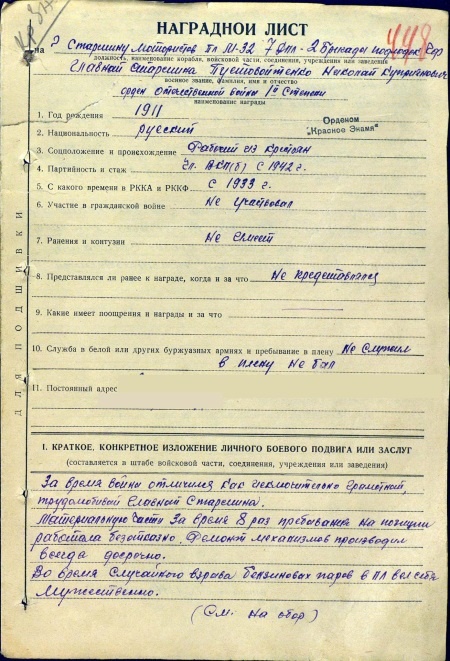 448
НАГРАДНОЙ ЛИСТ
на Старшину Мотористов пл М-32 7 Дпл - 2 Бригады подлодок
должность, наименование корабля, войсковой части, соединения, учреждения или заведения
Главный старшина Пустовойтенко Николай Куприянович
военное звание, фамилия, имя и отчество
орден Отечественной войны 1й Степени
наименование награды
Орденом
"Красное Знамя"
1. Год рождения 1911
2. Национальность русский
3. Соцположение и происхождение Рабочий из Крестьян
4. Партийность и стаж Чл. ВКП(б) с 1942 г.
5. С какого времени в РККА и РККФ с 1933 г.
6. Участие в гражданской войне Не участвовал
7. Ранения и контузии Не имеет
8. Представлялся ли ранее к награде, когда и за что Не представлялся
9. Какие имеет поощрения и награды и за что
10. Служба в белой или других буржуазных армиях и пребывание в плену Не служил
в плену не был
11. Постоянный адрес
ДЛЯ ПОДШИВКИ
I. КРАТКОЕ, КОНКРЕТНОЕ ИЗЛОЖЕНИЕ ЛИЧНОГО БОЕВОГО ПОДВИГА ИЛИ ЗАСЛУГ
(составляется в штабе войсковой части, соединения, учреждения или заведения)
За время войны отличился как исключительно грамотный,
трудолюбивый Главный Старшина.
Материальную часть за время 8 раз пребывания на позиции
работала безотказно. Ремонт механизмов производил
всегда досрочно.
Во время случайного взрыва бензиновых паров в ПЛ вел себя
Мужественно.
(См. на обор)